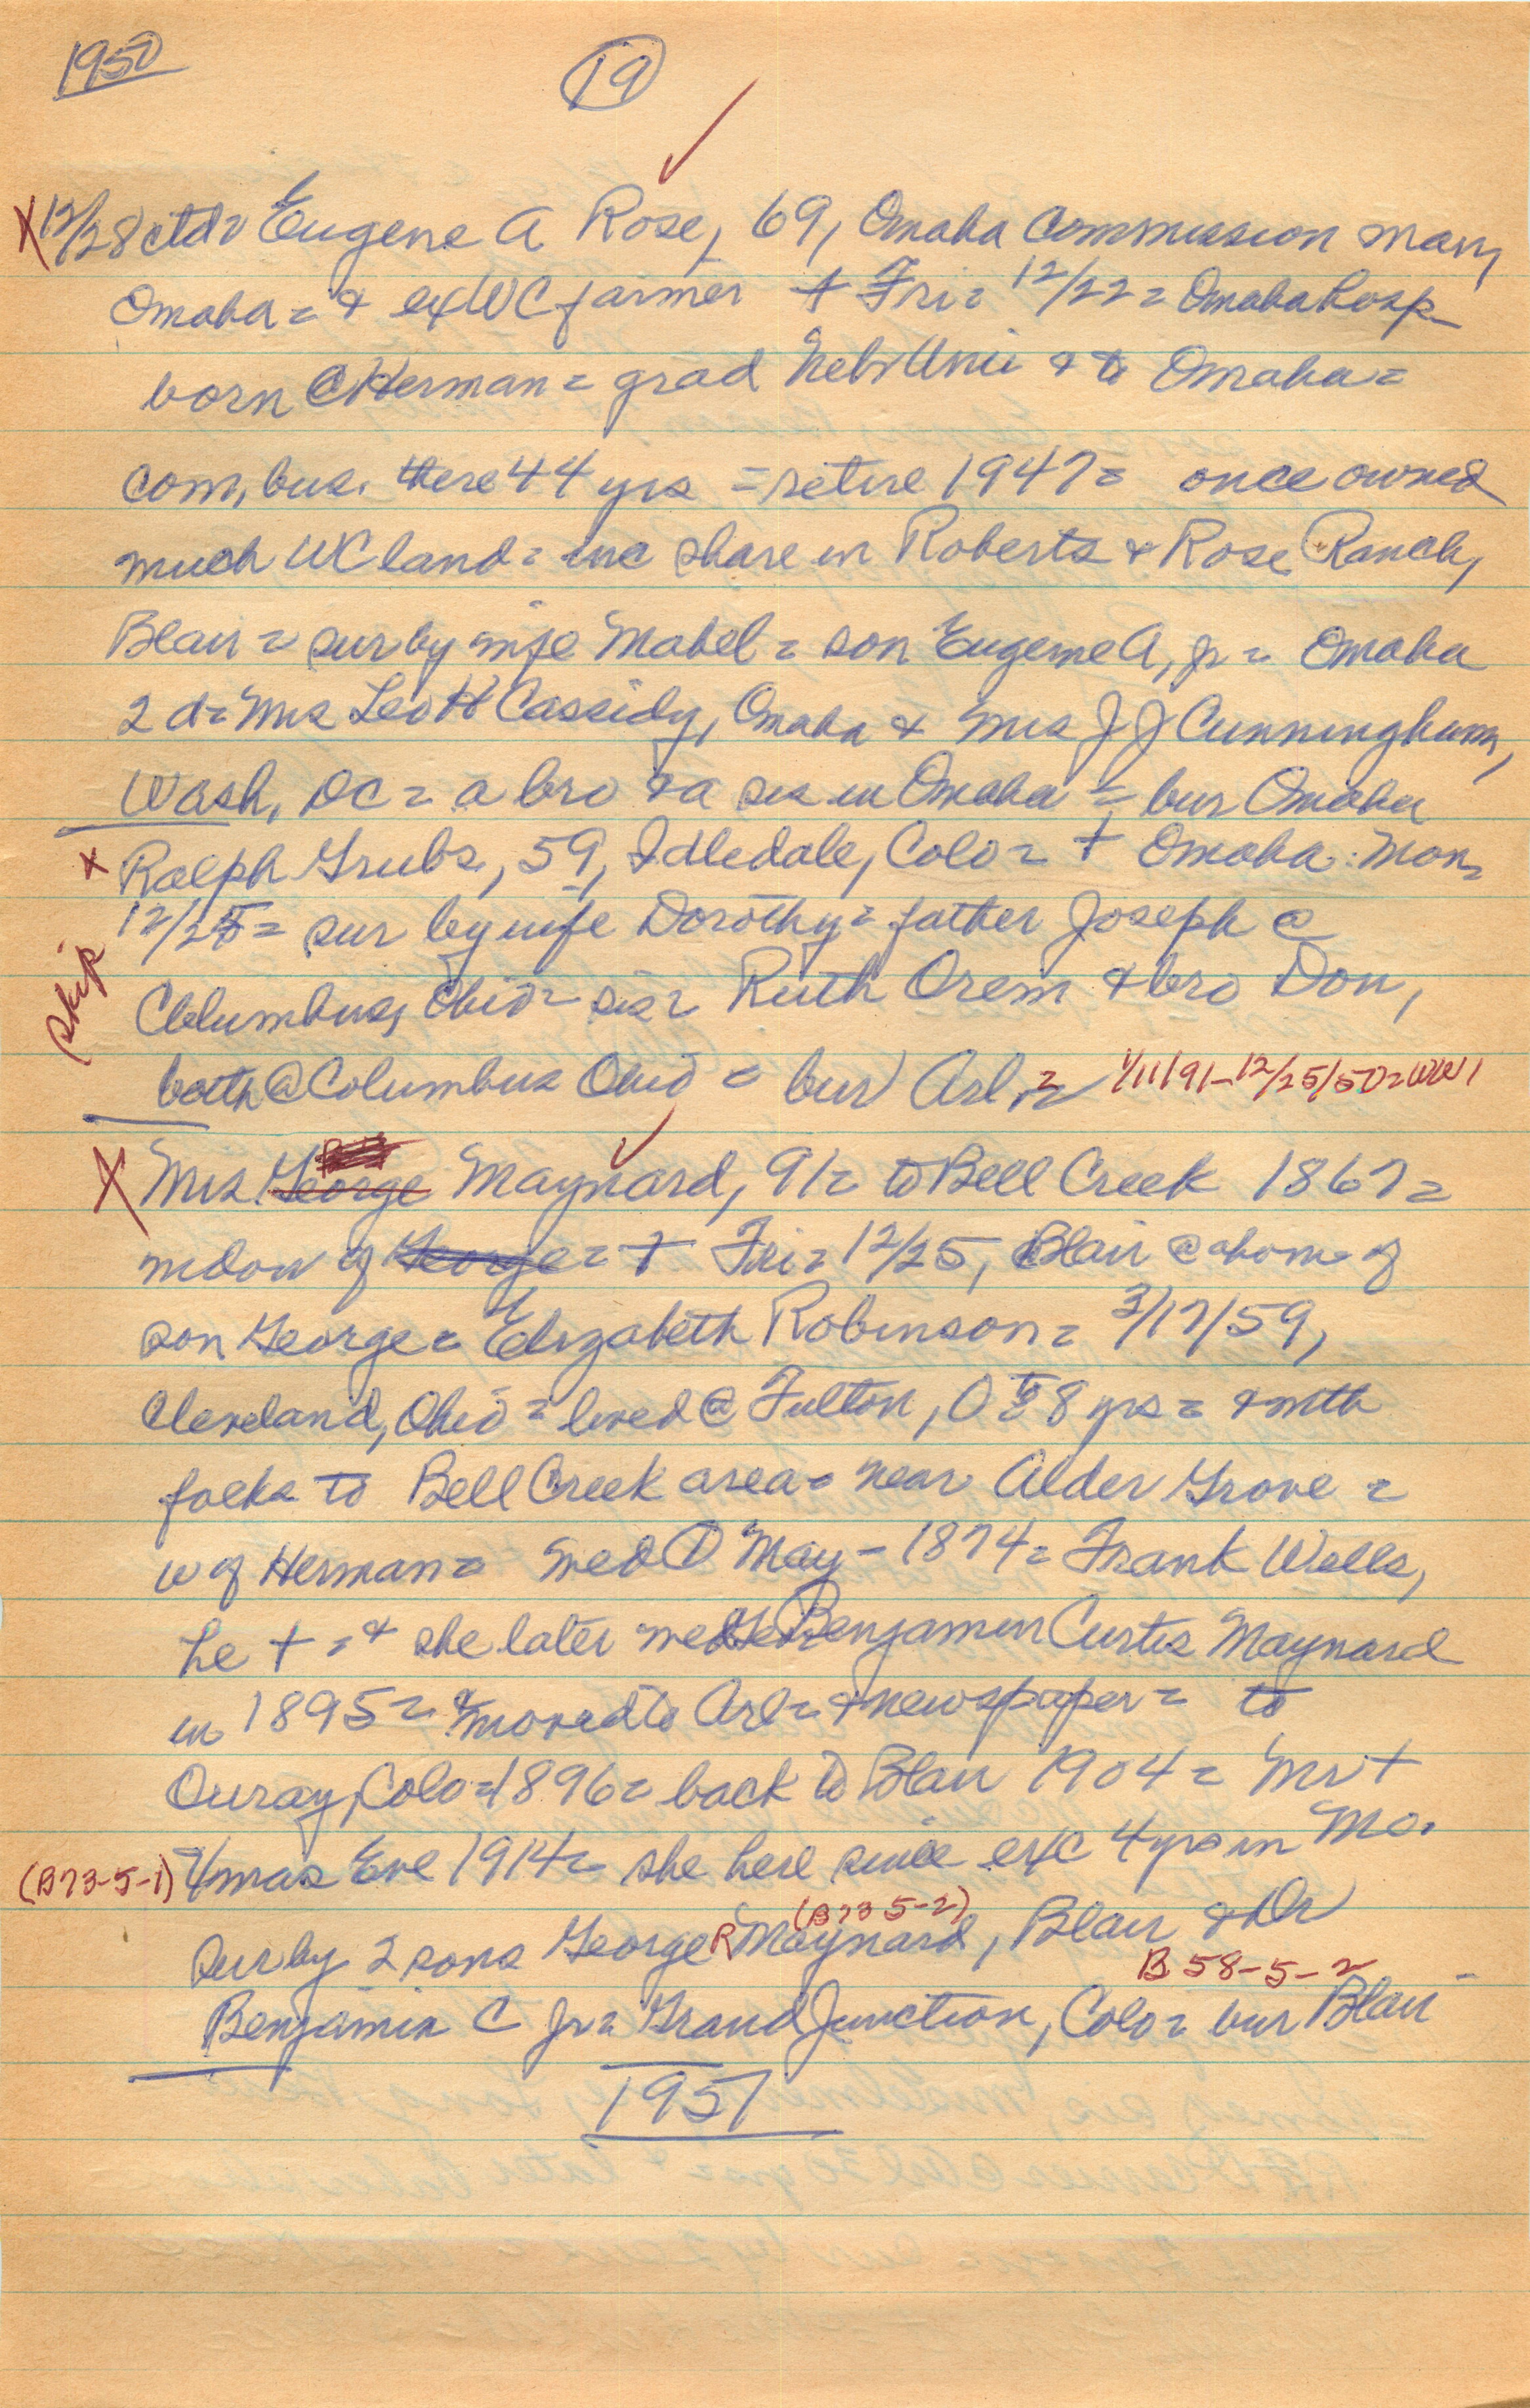 1950
19
X 12/28 ctd= Eugene A Rose, 69, Omaha Commission man,
Omaha = & ex WC farmer † Fri = 12/22 = Omaha hosp
born @ Herman = grad Neb Univ & to Omaha =
com. bus. there 44 yrs = retire 1947 = once owned
much WC land = inc share in Roberts & Rose Ranch,
Blair = sur by wife Mabel = son Eugene A, jr = Omaha
2 d = Mrs Leo H Cassidy, Omaha & Mrs J J Cunningham,
Wash, DC = a bro & a sis in Omaha = bur Omaha
x Ralph Grubs, 59, Idledale, Colo = † Omaha Mon =
12/25 = sur by wife Dorothy = father Joseph @
skip
Columbus, Ohio = sis = Ruth Orem & bro Don,
both @ Columbus Ohio = bur Arl = 1/11/91-12/25/50 = WW 1
X Mrs. George Maynard, 91 = to Bell Creek 1867 =
widow of George = † Fri = 12/25, Blair @ home of
son George = Elizabeth Robinson = 3/17/59,
Cleveland, Ohio = lived @ Fulton, O to 8 yrs = & with
folks to Bell Creek area = near Alder Grove =
w of Herman = wed ① May - 1874 = Frank Wells,
he † = & she later wed Benjamin Curtis Maynard
in 1895 = & moved to Arl = & newspaper = to
Ouray, Colo = 1896 = back to Blair 1904 = Mr †
(B73-5-1) Xmas Eve 1914 = she here since exc 4 yrs in Mo.
(B73 5-2)
Sur by 2 sons George R Maynard, Blair & Dr
B 58-5-2
Benjamin C Jr = Grand Junction, Colo = bur Blair
1951